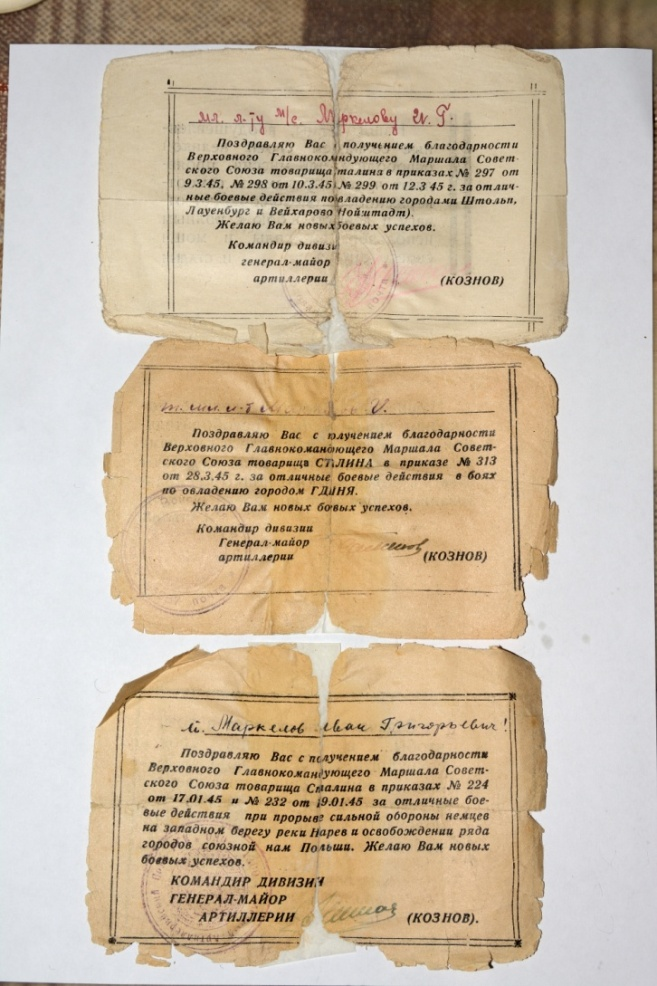 мл. л-ту м/с. Маркелову И. Г.
Поздравляю Вас получением благодарности
Верховного Главнокомандующего Маршала Совет-
ского Союза товарища талина в приказах № 297 от
9.3.45, № 298 от 10.3.45 № 299 от 12.3 45 г. за отлич-
ные боевые действия по владению городами Штольп,
Лауенбург и Вейхарово Нойштадт).
Желаю Вам новых боевых успехов.
Командир дивизи
генерал-майор
артиллерии (КОЗНОВ)
т. мл. л-т
Поздравляю Вас с получением благодарности
Верховного Главнокомандующего Маршала Совет-
ского Союза товарища СТАЛИНА в приказе № 313
от 28.3.45 г. за отличные боевые действия в боях
по овладению городом ГДЫНЯ.
Желаю Вам новых боевых успехов.
Командир дивизии
Генерал-майор
артиллерии (КОЗНОВ)
т. Маркелов Иван Григорьевич!
Поздравляю Вас с получением благодарности
Верховного Главнокомандующего Маршала Совет-
ского Союза товарища Сталина в приказах № 224
от 17.01.45 и № 232 от 19.01.45 за отличные бое-
вые действия при прорыве сильной обороны немцев
на западном берегу реки Нарев и освобождении ряда
городов союзной нам Польши. Желаю Вам новых
боевых успехов.
КОМАНДИР ДИВИЗИИ
ГЕНЕРАЛ-МАЙОР
АРТИЛЛЕРИИ (КОЗНОВ).